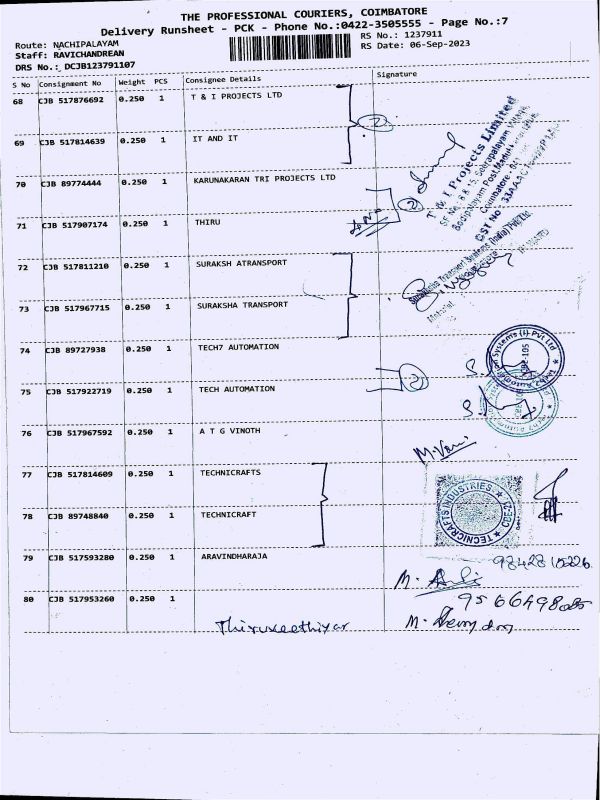 THE PROFESSIONAL COURIERS, COIMBATORE
Delivery Runsheet - PCK - Phone No.:0422-3505555 - Page No.:7
Route: NACHIPALAYAM
RS No.: 1237911
Staff: RAVICHANDREAN
RS Date: 06-Sep-2023
DRS No.: DCJB123791107
S No Consignment No Weight PCS Consignee Details Signature
68 CJB 517876692 0.250 1 T & I PROJECTS LTD
69 CJB 517814639 0.250 1 IT AND IT
70 CJB 89774444 0.250 1 KARUNAKARAN TRI PROJECTS LTD
71 CJB 517907174 0.250 1 THIRU
72 CJB 517811210 0.250 1 SURAKSH ATRANSPORT
73 CJB 517967715 0.250 1 SURAKSHA TRANSPORT
74 CJB 89727938 0.250 1 TECH7 AUTOMATION
75 CJB 517922719 0.250 1 TECH AUTOMATION
76 CJB 517967592 0.250 1 A T G VINOTH
77 CJB 517814609 0.250 1 TECHNICRAFTS
78 CJB 89748840 0.250 1 TECHNICRAFT
79 CJB 517593280 0.250 1 ARAVINDHARAJA
80 CJB 517953260 0.250 1
2
2
2
T & I Projects Limited
Coimbatore
TECNICRAFTS INDUSTRIES
M.
M.